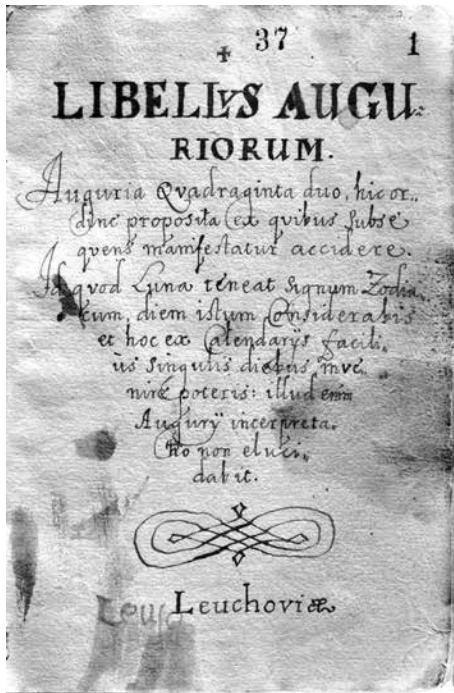 37 1
LIBELLVS AUGU
RIORUM.
Auguria Qvadraginta duo, hic or„
dine proposita ex qvibus subse
qvens manifestatur accidere.
Id qvod Luna teneat signum Zodia„
cum, diem istum Considerabis
et hoc ex Calendarijs facili„
us singulis diebus inve„
nire poteris: illud enim
Augurÿ interpreta„
tio non eluci„
dabit.
Leuchoviæ